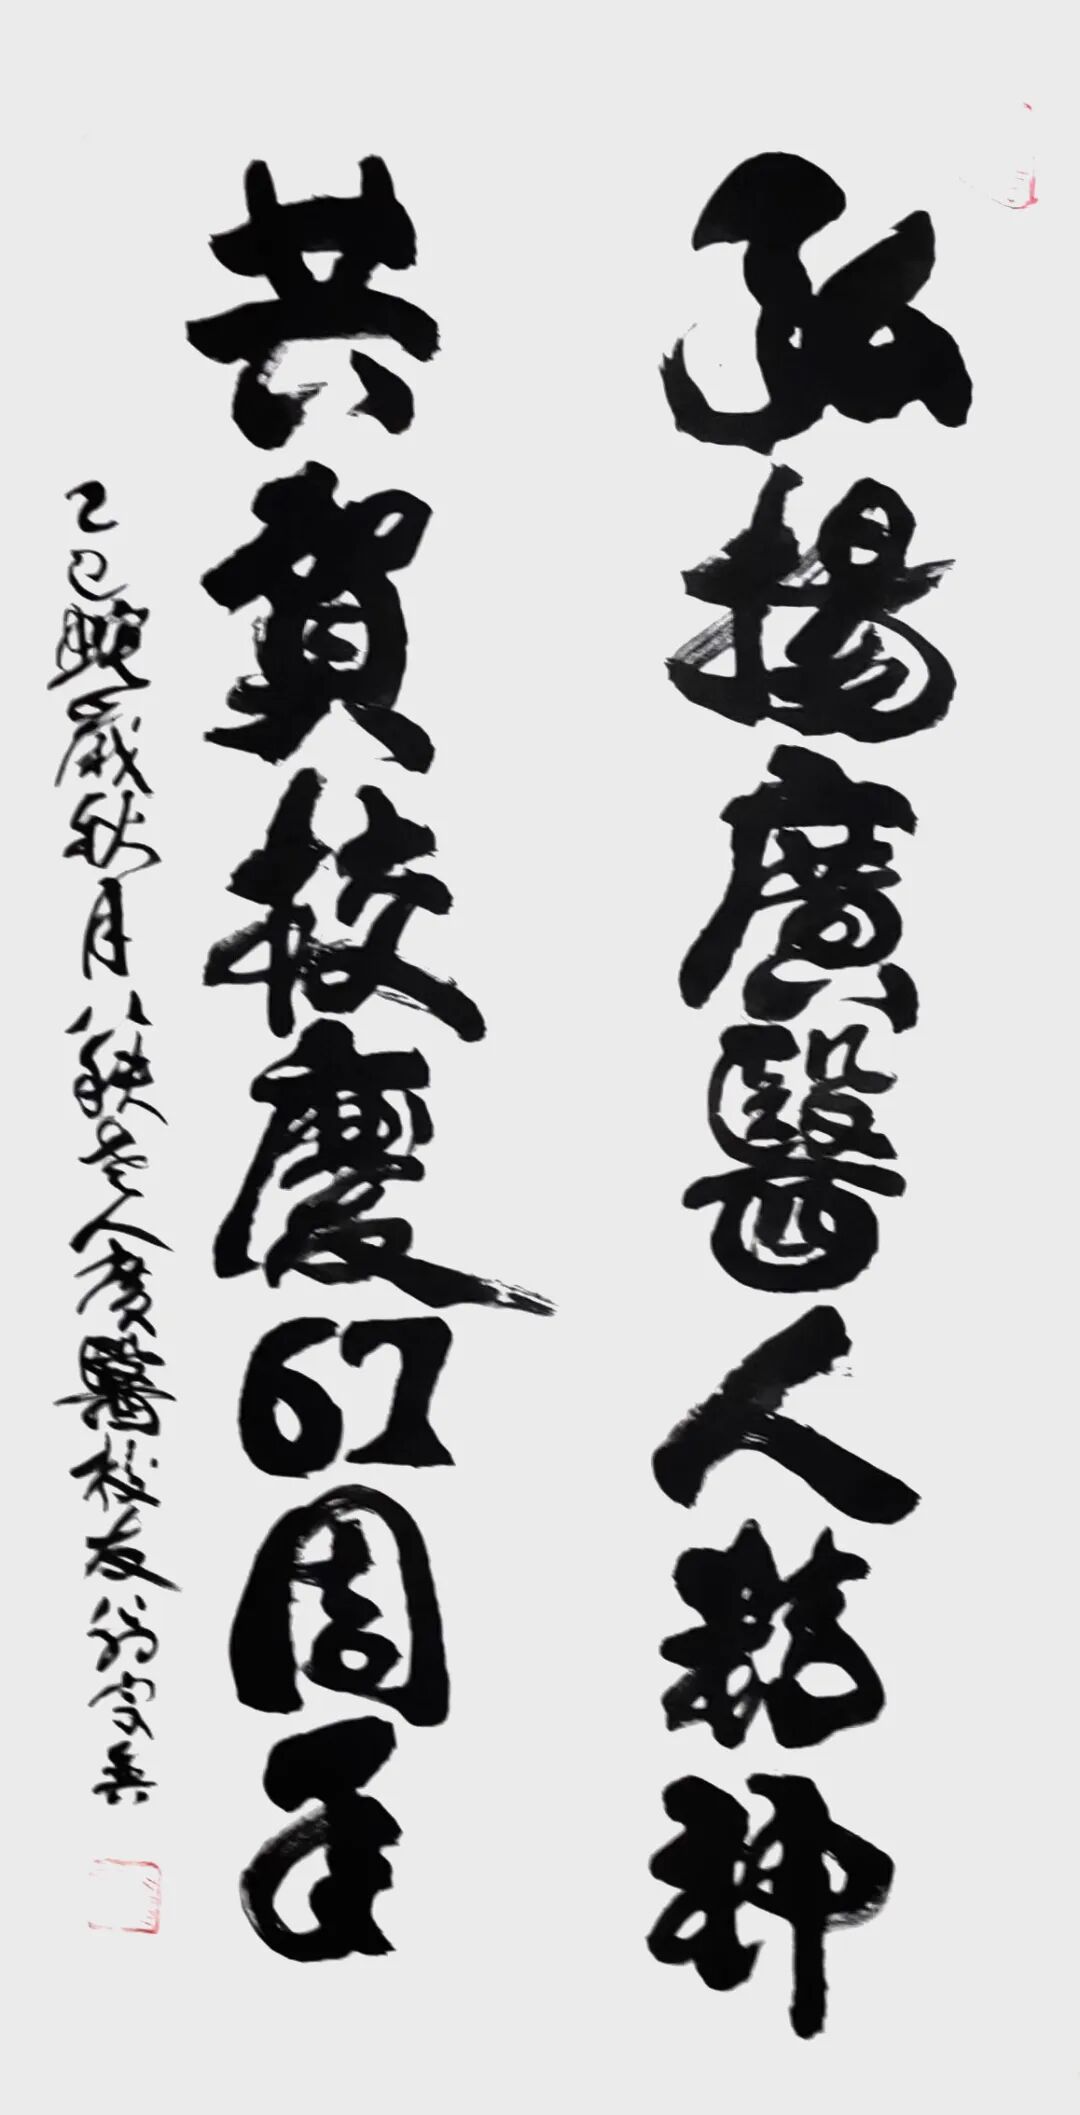 弘揚廣醫人精神
共賀校慶67周年
乙巳蛇歲秋月八秩老人廣醫校友翁